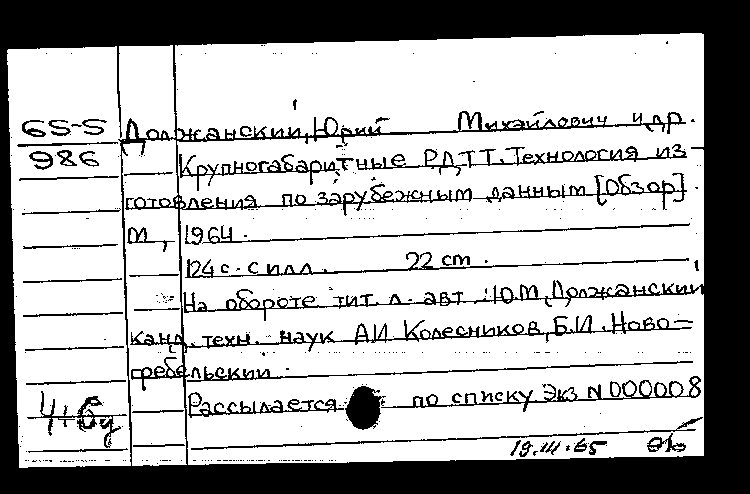 65-5
986
Должанский, Юрий Михайлович и др.
Крупногабаритные РДТТ. Технология из-
готовления по зарубежным данным [Обзор].
М, 1964.
124 с. с илл. 22 cm.
На обороте тит. л. авт.: Ю.М. Должанский,
канд. техн. наук А.И Колесников, Б.И. Ново=
гребельский.
Рассылается по списку Экз N 000008
19.III.65